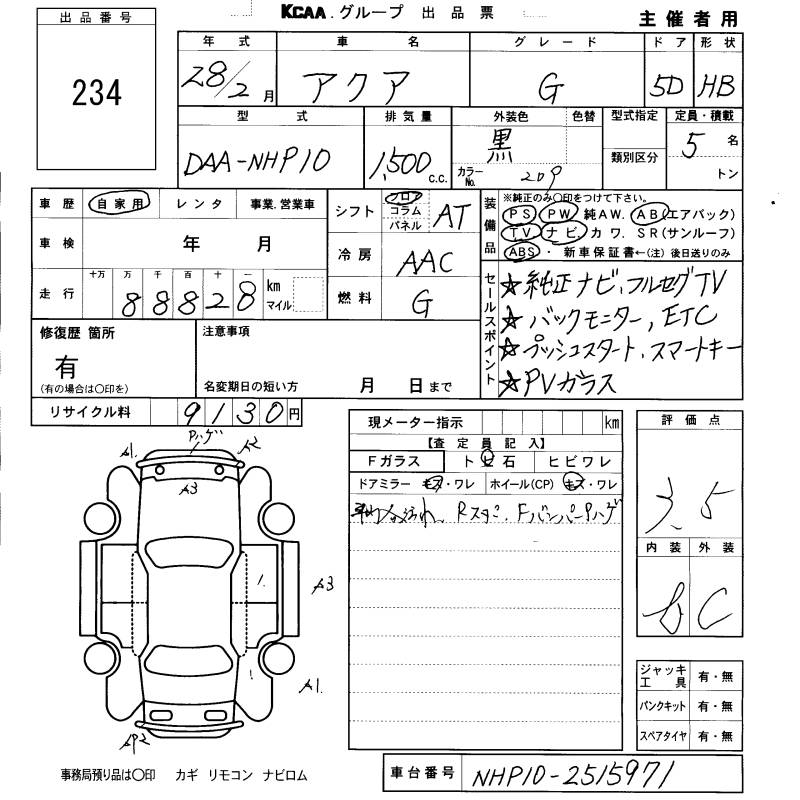 KCAA.グループ 出品票
主催者用
出品番号
234
年式 車名 グレード ドア 形状
28/2月 アクア G 5D HB
型式 排気量 外装色 色替 型式指定 定員・積載
DAA-NHP10 1,500 c.c. 黒 カラーNo. 209 類別区分 5名 トン
車歴 自家用 レンタ 事業.営業車
車検 年 月
走行 十万 万 千 百 十 一
88828 km マイル
シフト フロア コラム パネル AT
冷房 AAC
燃料 G
装備品
※純正のみ〇印をつけて下さい。
PS PW 純AW. AB(エアバック)
TV ナビ. カワ. SR(サンルーフ)
ABS・新車保証書←(注)後日送りのみ
セールスポイント
☆純正ナビ、フルセグTV
☆バックモニター, ETC
☆プッシュスタート、スマートキー
☆PVガラス
修復歴 箇所
有
(有の場合は〇印を)
注意事項
名変期日の短い方 月 日まで
リサイクル料 9130円
Pハゲ
A1. A2
A3
1.
A3
1
A1.
AP2
現メーター指示 km
【査定員記入】
Fガラス ト ビ 石 ヒビワレ
ドアミラー キズ・ワレ ホイール(CP) キズ・ワレ
Rスタミ. FバンパーPハゲ
評価点
3.5
内装 外装
b C
ジャッキ工具 有・無
パンクキット 有・無
スペアタイヤ 有・無
事務局預り品は〇印 カギ リモコン ナビロム
車台番号 NHP10-2515971